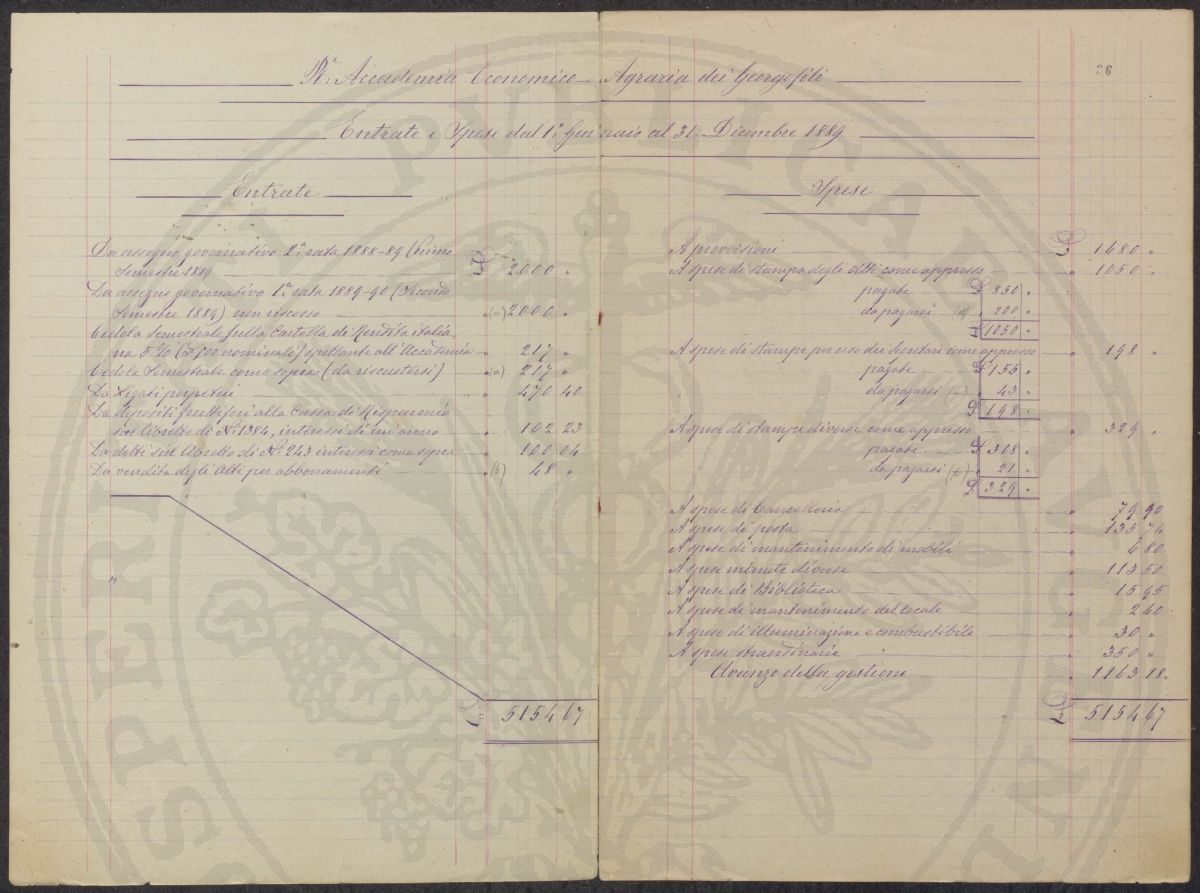 26
R.ª Accademia Economico-Agraria dei Georgofili
Entrate e Spese dal 1.º Gennaio al 31 Dicembre 1889
Entrate
Da assegno governativo 2.ª rata 1888-89 (Primo
Semestre 1889 £ 2000 "
Da assegno governativo 1.ª rata 1889-90 (Secondo
Semestre 1889) non riscosso " (a) 2000 "
Cedola Semestrale sulla Cartella di Rendita italia-
na 5 % (£ 500 nominali) spettante all'Accademia " 217 "
Cedola Semestrale come sopra (da riscuotersi) " (a) 217 "
Da Legati perpetui " 470 40
Da depositi fruttiferi alla Cassa di Risparmio
sul libretto di N.º 1384, interessi di un anno " 102 23
Da detti sul libretto di N.º 243 interessi come sopra " 100 04
Da vendita degli Atti per abbonamenti " (b) 48 "
£ 5154 67
Spese
A provvisioni £ 1680 "
A spese di stampa degli Atti come appresso " 1050 "
pagate £ 850 "
da pagarsi " 200 "
£ 1050 "
A spese di stampe per uso dei Secretari come appresso " 198 "
pagate £ 155 "
da pagarsi " 43 "
£ 198 "
A spese di stampe diverse come appresso " 329 "
pagate £ 308 "
da pagarsi " 21 "
£ 329 "
A spese di Cancelleria " 79 90
A spese di posta " 135 74
A spese di mantenimento di mobili " 6 80
A spese minute diverse " 113 50
A spese di Biblioteca " 15 95
A spese di mantenimento del locale " 2 60
A spese di illuminazione e combustibili " 30 "
A spese straordinarie " 350 "
Avanzo della gestione " 1163 18
£ 5154 67